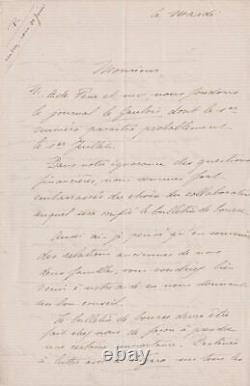 ce Mardi
Monsieur
M. H. de Pène et moi, nous fondons
le journal le Gaulois dont le 1er
numéro paraîtra probablement
le 1er Juillet.
Dans notre ignorance des questions
financières, nous sommes fort
embarrassés du choix du collaborateur
auquel sera confié le bulletin de bourse
Aussi ai-je pensé qu'en souvenir
des relations anciennes de nos
deux familles, vous voudriez bien
venir à notre aide en nous donnant
un bon conseil.
Le bulletin de bourse devra être
fait chez nous de façon à prendre
une certaine importance.
tous les